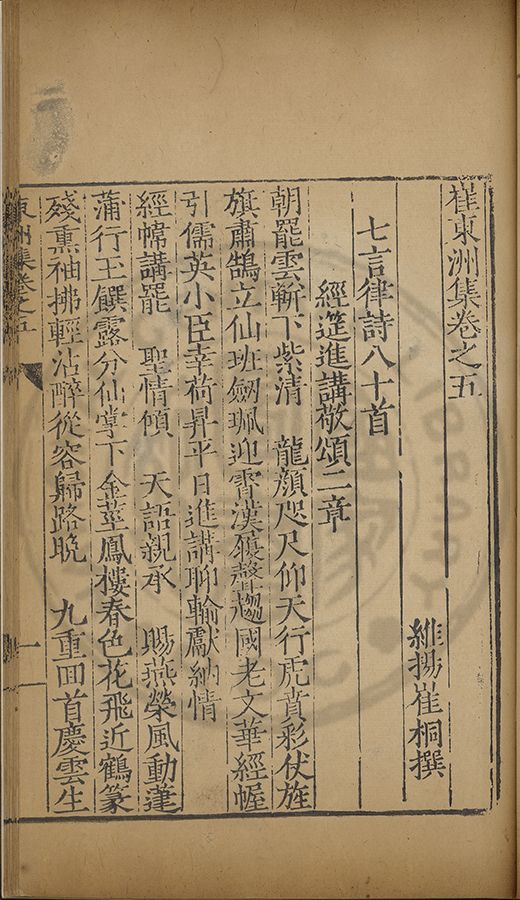 崔東洲集卷之五
維揚崔桐撰
七言律詩八十首
經筵進講敬頌二章
朝罷雲斬下紫清 龍顏咫尺仰天行虎賁彩伏旌
旗肅鵠立仙班劒珮迎霄漢簪趨國老文華經幄
引儒英小臣幸荷昇平日進講聊輸獻納情
經幃講罷 聖情傾 天語親承 賜燕榮風動蓬
蒲行王饌露分仙掌下金莖鳳樓春色花飛近鶴篆
殘熏袖拂輕沾醉從容歸路晩 九重囬首慶雲生
東洲集卷之五
一